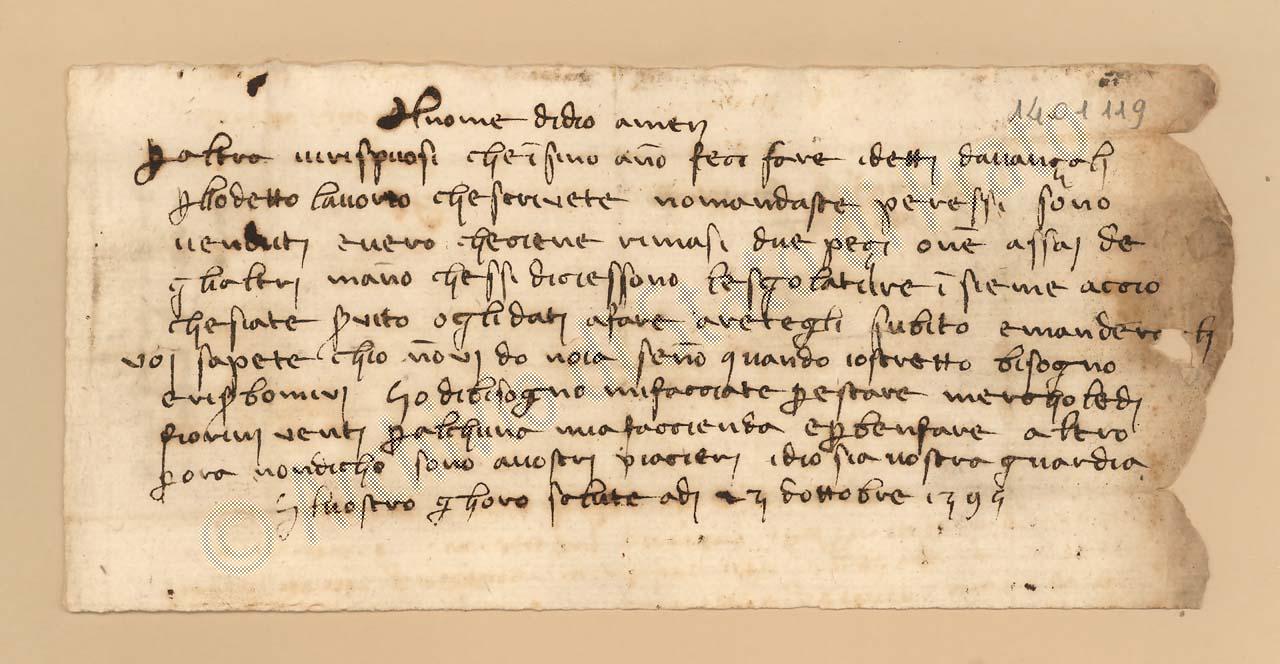 Al nome didio amen
1401119
p altra virispuosi che ĩsino año feci fare idetti davanzali
plodetto lavoro chescrivete nomandaste peressi sono
venduti evero checiene rimasi due pezi ove assai de
glialtri mano chessi diciessono lescolature ĩsieme accio
chesiate servito oglidati afare aretegli subito emandero li
voi sapete chio ño vi do noia seño quando iostretto bisogno
hodibisogno mifacciate prestare mercholedi
fiorini venti palchuna miafaccienda epbenfare altro
pora nondicho sono avostri piacieri idio sia vostra guardia
Il vostro ghoro salute adi d'ottobre 1395